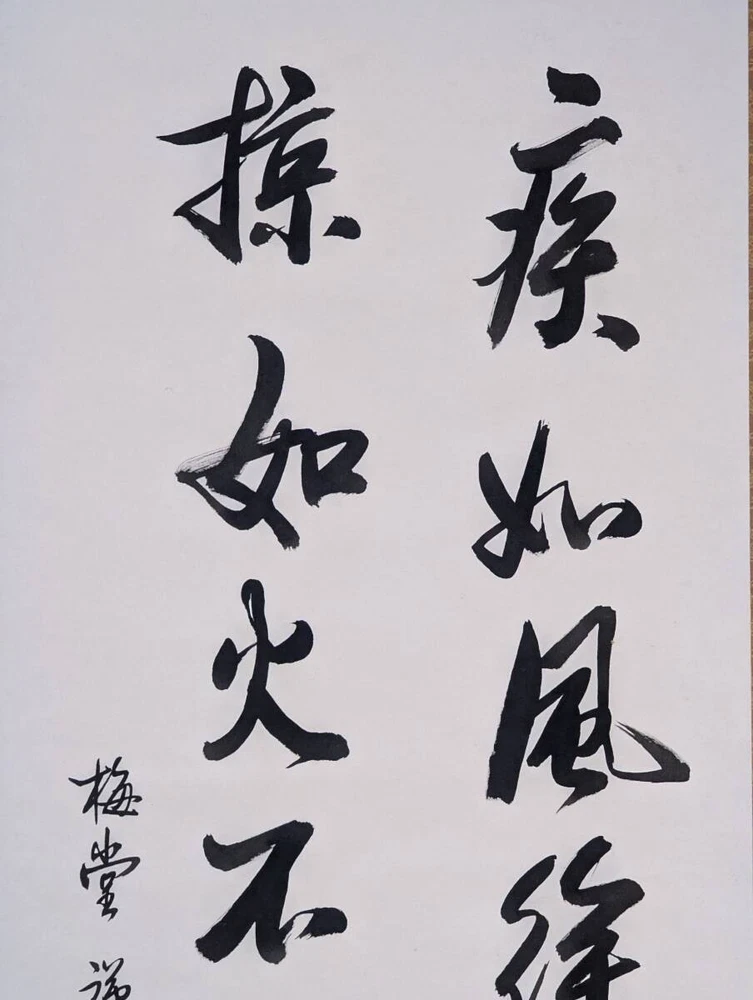 疾如風徐
掠如火不
梅堂